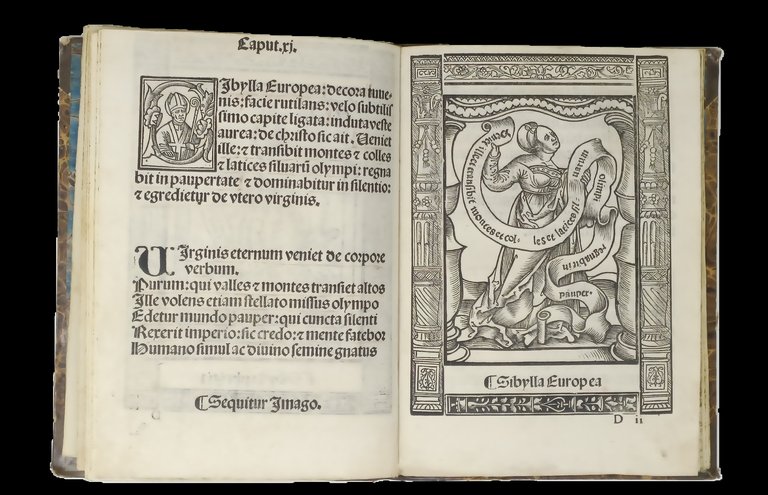 Caput.xj.
SIbylla Europea: decora iuue-
nis: facie rutilans: velo subtilis
simo capite ligata: induta veste
aurea: de christo sic ait. Ueniet
ille: & transibit montes & colles
& latices siluarũ olympi: regna
bit in paupertate & dominabitur in silentio:
& egredietur de vtero virginis.
UIrginis eternum veniet de corpore
verbum.
Purum: qui valles & montes transiet altos
Ille volens etiam stellato missus olympo
Edetur mundo pauper: qui cuncta silenti
Rexerit imperio: sic credo: & mente fatebor
Humano simul ac diuino semine gnatus
¶Sequitur Imago.
veniet ille et transibit montes et col-
les et latices sil
uarum
olimpi
regnabit in
pauper-
¶Sibylla Europea
D ii